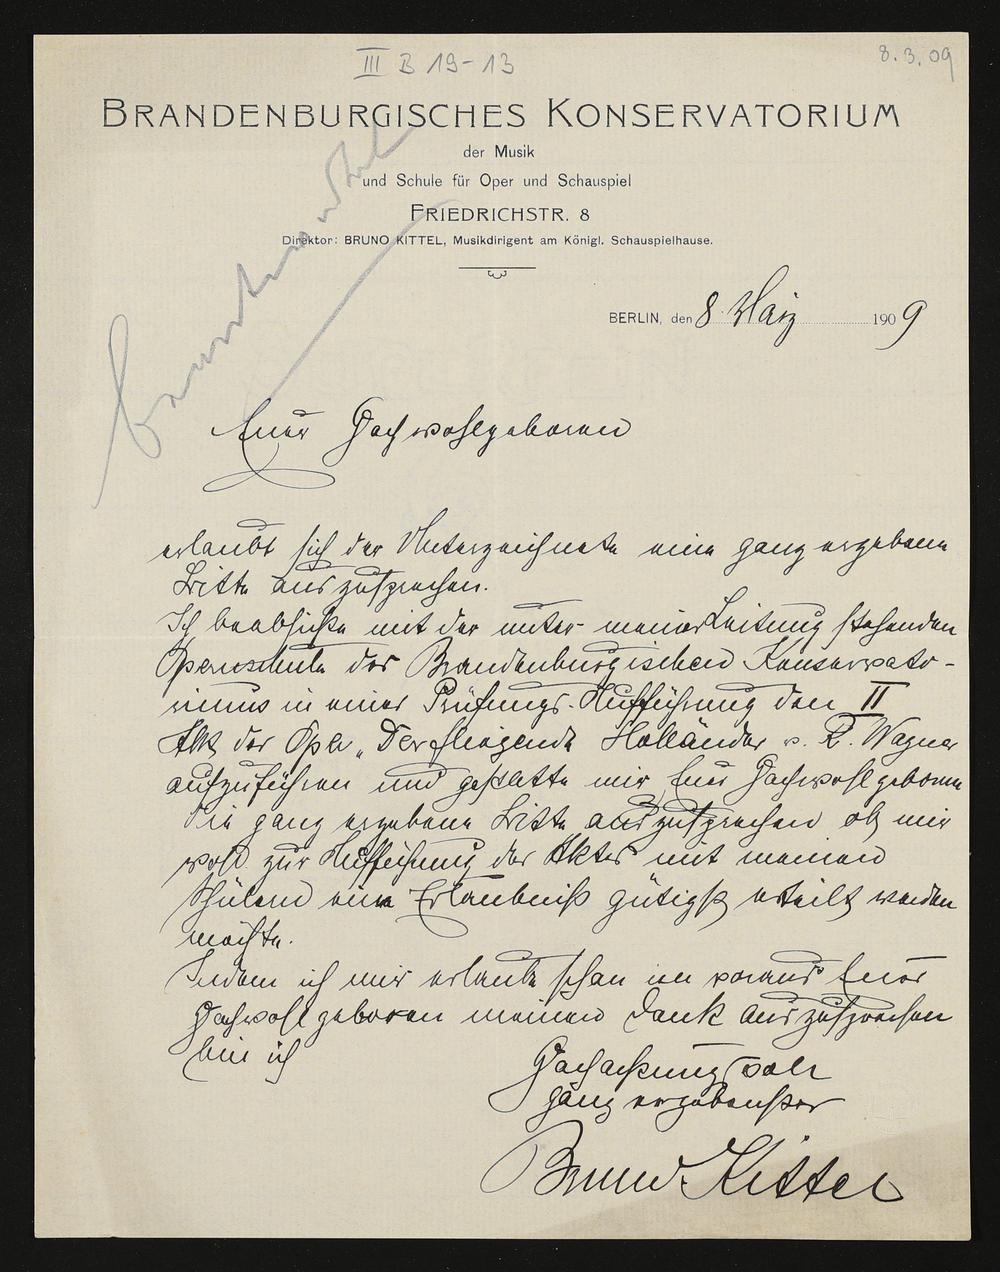 III B 19-13
8.3.09
BRANDENBURGISCHES KONSERVATORIUM
der Musik
und Schule für Oper und Schauspiel
FRIEDRICHSTR. 8
Direktor: BRUNO KITTEL, Musikdirigent am Königl. Schauspielhause.
BERLIN, den 8. März 1909
Euer Hochwohlgeboren
erlaubt sich der Unterzeichnete eine ganz ergebene
Bitte auszusprechen.
Ich beabsichte mit der unter meiner Leitung stehenden
Opernschule des Brandenburgischen Konservato-
riums in einer Prüfungs-Aufführung den II
Akt der Oper „Der fliegende Holländer v. R. Wagner
aufzuführen und gestatte mir, Euer Hochwohlgeboren
die ganz ergebene Bitte auszusprechen ob mir
wohl zur Aufführung des Aktes mit meinen
Schülern eine Erlaubniß gütigst erteilt werden
möchte.
Indem ich mir erlaube schon im voraus Euer
Hochwohlgeboren meinen Dank auszusprechen
bin ich
Hochachtungsvoll
ganz ergebenster
Bruno Kittel